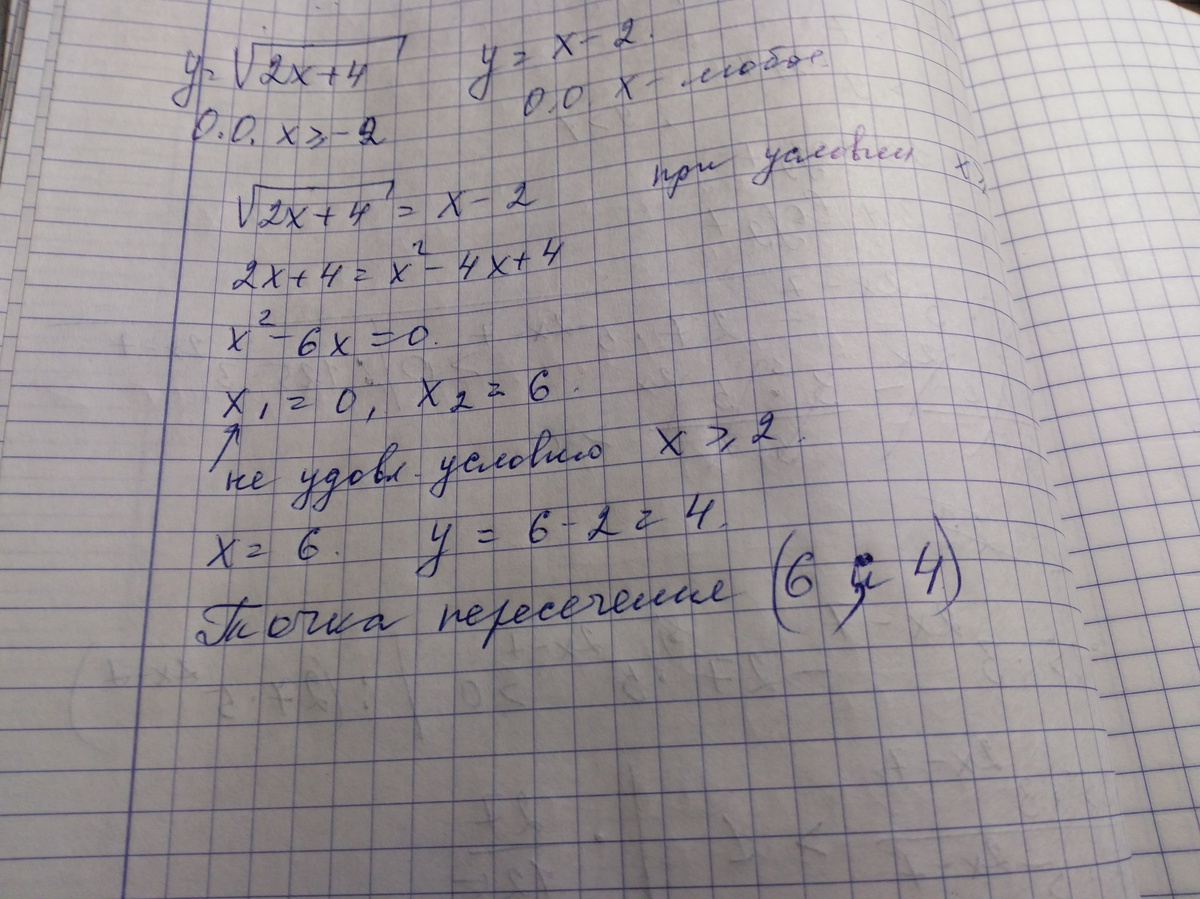 y = √2x+4 y = x - 2.
О.О. x ≥ -2 О.О x - любое.
√2x+4 = x - 2 при условии x ≥
2x+4 = x² - 4x+4
x² - 6x = 0.
x₁ = 0, x₂ = 6.
не удовл. условию x ≥ 2.
x = 6. y = 6 - 2 = 4.
Точка пересечения (6 ; 4)